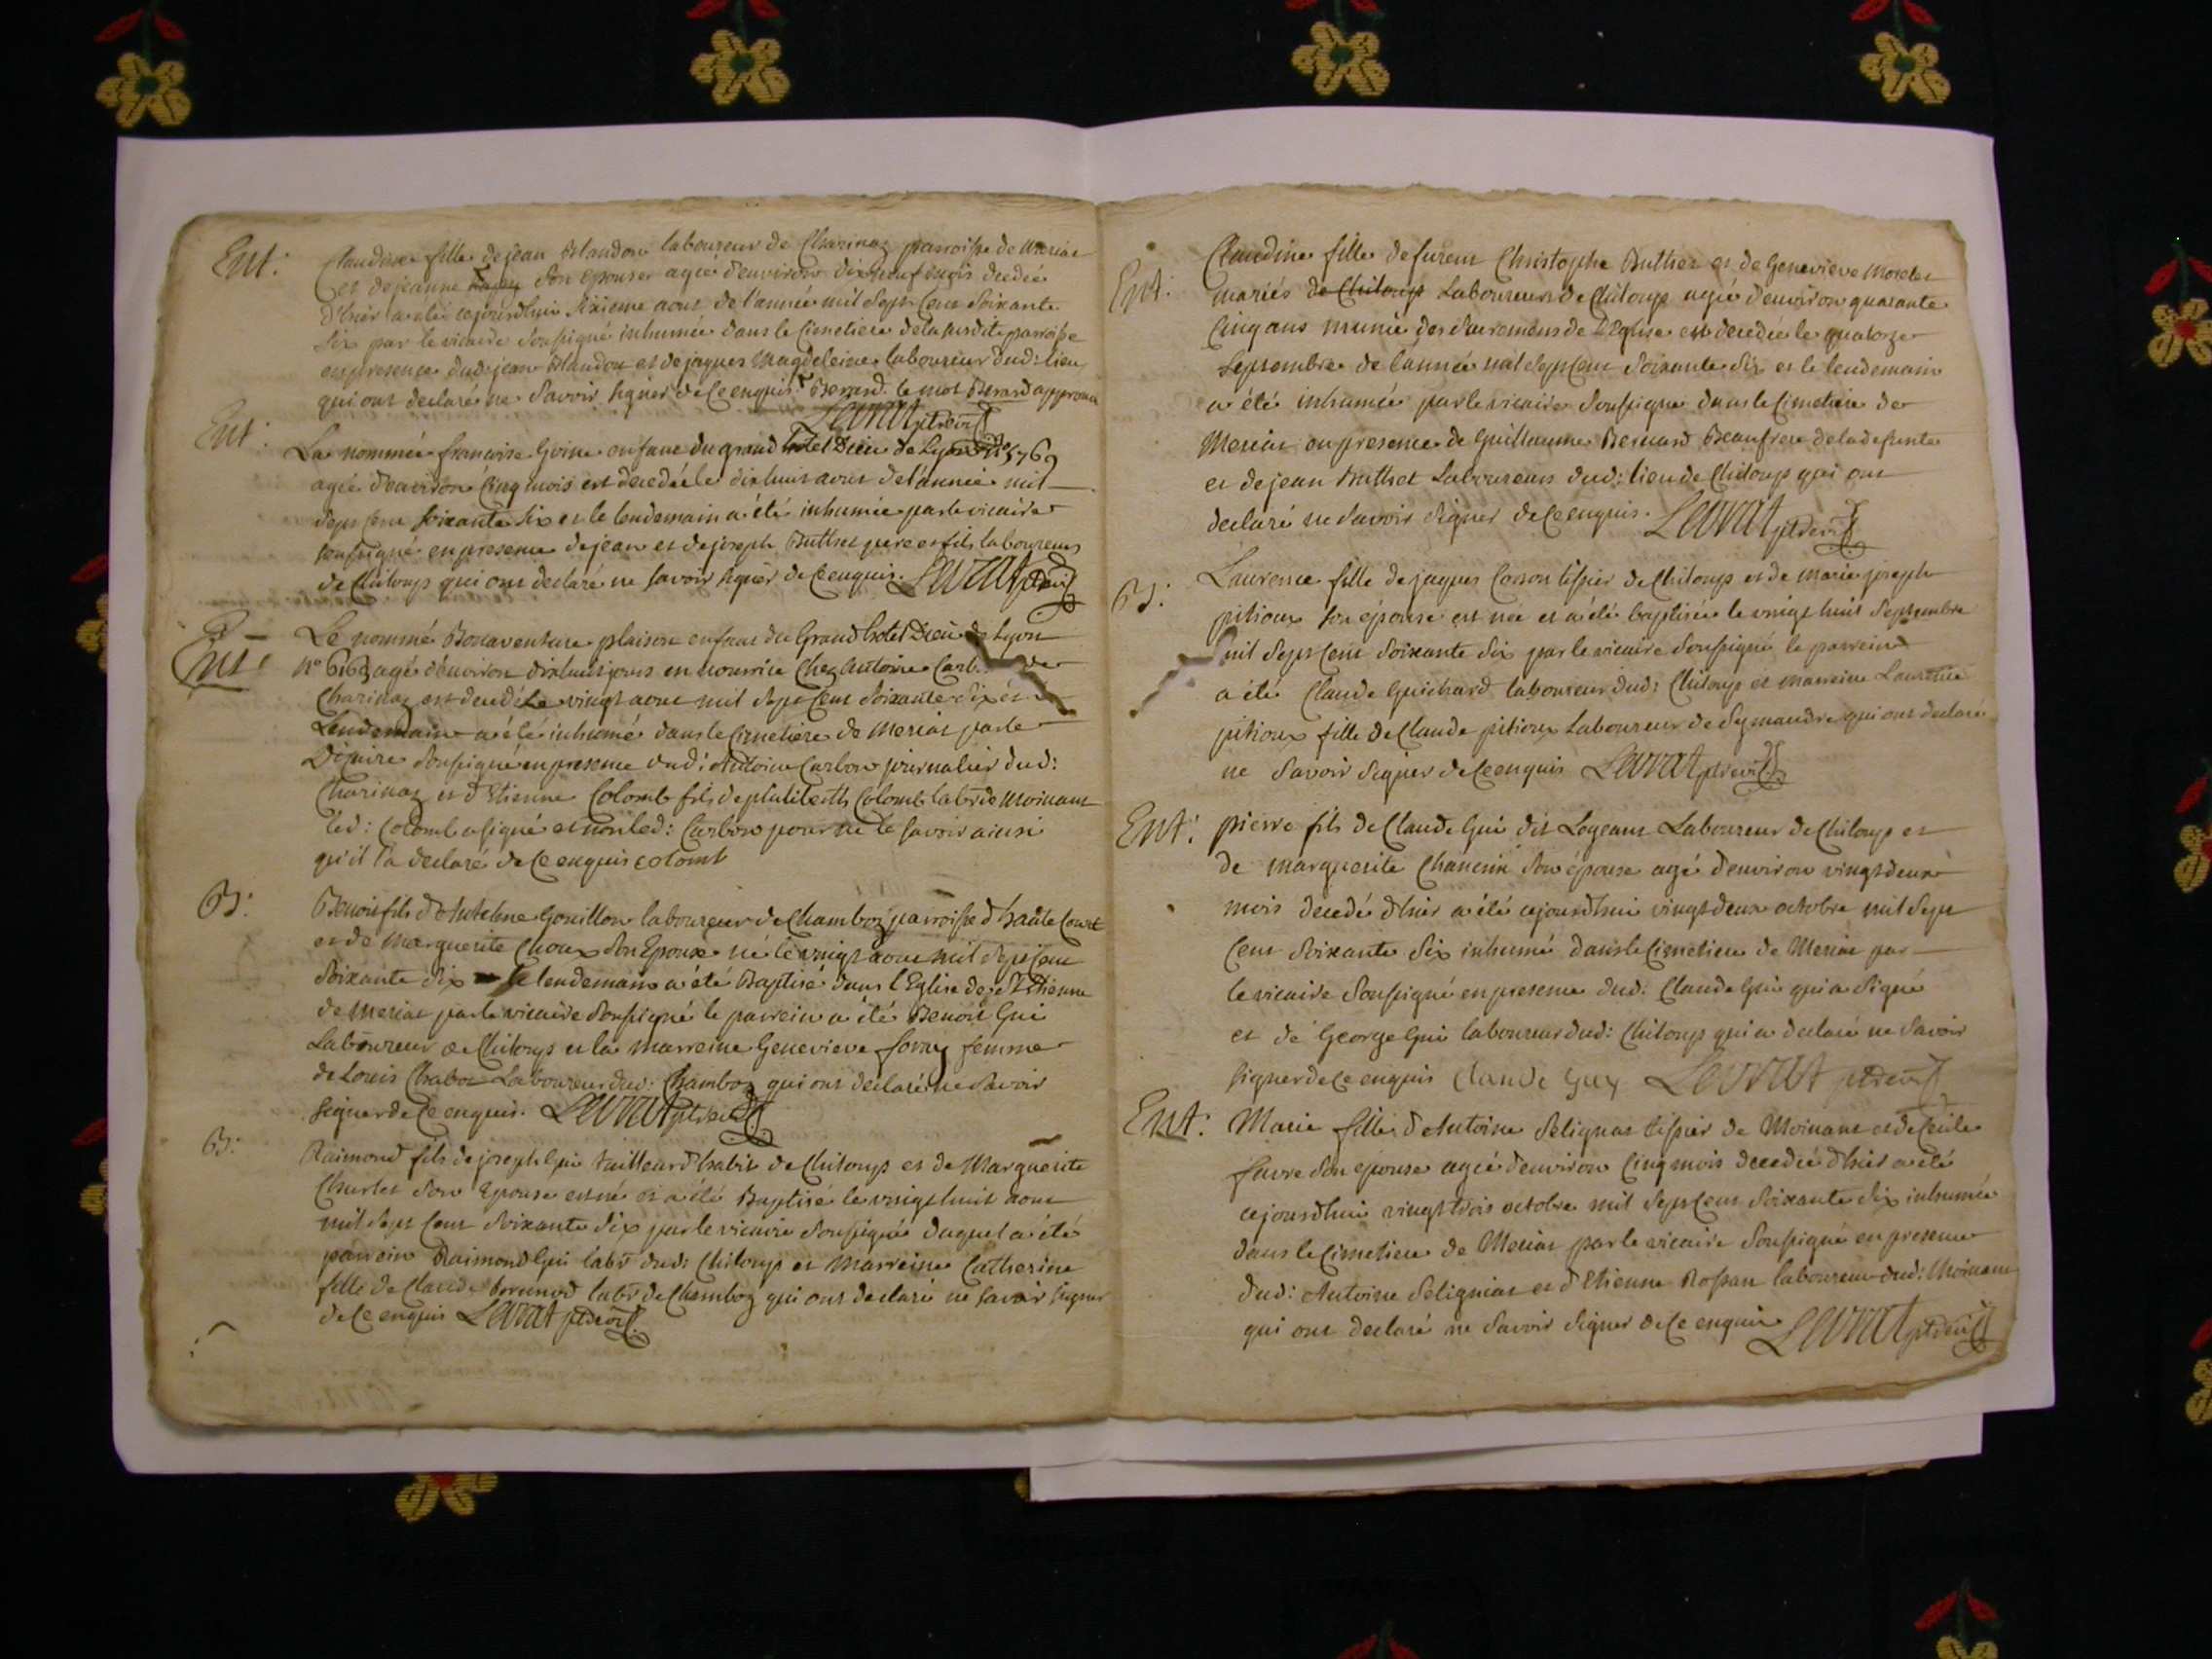 Ent: Claudine fille de jean Blandon laboureur de Charinaz parroisse de Meriat
et de jeanne son epouse agée d'environ dix neuf mois decedée
d'hier a été cejourdhui sixieme aout de l'année mil sept cent soixante
six par le vicaire soussigné inhumée dans le cimetiere de la susdite parroisse
en presence dud: jean Blandon et de jaques Magdeleine laboureur dud: lieu
qui ont declaré ne savoir signer de ce enquis. Berard. le mot Berard approuvé
Levrat ptre vic
Ent: La nommée francoise Goine enfant du grand hotel Dieu de Lyon n° 5769
agée d'environ cinq mois est decedée le dix huit aout de l'année mil
sept cent soixante six et le lendemain a été inhumée par le vicaire
soussigné en presence de jean et de joseph Buthet pere et fils laboureurs
de Chiloup qui ont declaré ne savoir signer de ce enquis. Levrat ptre vic
Ent: Le nommé Bonaventure plaison enfant du Grand hotel Dieu de Lyon
n° 6163 agé d'environ dix huit jours en nourrice chez Antoine Carb de
Charinaz est decedé Le vingt aout mil sept cent soixante six et
Lendemain a été inhumé dans le Cimetiere de Meriat par le
Vicaire soussigné en presence dud: Antoine Carbon journalier dud:
Charinaz et d'Etienne Colomb fils de philiberth Colomb labr de Moinant
led: Colomb a signé et non led: Carbon pour ne le savoir ainsi
qu'il l'a declaré de ce enquis colomb
B: Benoit fils d'Anthelme Gouillon laboureur de Chamboz parroisse d'haute Court
et de Marguerite Choux son Epouse né le vingt aout mil sept cent
soixante six le lendemain a été Baptisé dans l'Eglise de St Etienne
de Meriat par le vicaire soussigné le parrein a été Benoit Gui
Laboureur de Chiloup et la marreine Genevieve favre femme
de Louis Chabot Laboureur dud: Chamboz qui ont declaré ne savoir
signer de ce enquis. Levrat ptre vic
B: Raimond fils de joseph Gui tailleur d'habit de Chiloup et de Marguerite
Charlet son Epouse est né et a été Baptisé le vingt huit aout
mil sept cent soixante six par le vicaire soussigné duquel a été
parrein Raimond Gui labr dud: Chiloup et Marreine Catherine
fille de Claude brunod labr de Chamboz qui ont declaré ne savoir signer
de ce enquis Levrat ptre vic
Ent: Claudine fille de furent Christophe Buthet et de Genevieve Morelet
mariés de Chiloup Laboureurs de Chiloup agée d'environ quarante
cinq ans munie des sacremens de L'Eglise est decedée le quatorze
septembre de l'année mil sept cent soixante six et le lendemain
a été inhumée par le vicaire soussigné dans le cimetiere de
Meriat en presence de Guillaume Bernard Beaufrere de la defunte
et de jean Buthet Laboureurs dud: lieu de Chiloup qui ont
declaré ne savoir signer de ce enquis. Levrat ptre vic
B: Laurence fille de jaques Cosson tissier de Chiloup et de marie joseph
pitioux son épouse est née et a été baptisée le vingt huit septembre
mil sept cent soixante six par le vicaire soussigné le parrein
a été Claude Guichard laboureur dud: Chiloup et marreine Laurence
pitioux fille de Claude pitioux Laboureur de Symandre qui ont declaré
ne savoir signer de ce enquis Levrat ptre vic
Ent: pierre fils de Claude Gui dit Logeant Laboureur de Chiloup et
de marguerite Chanerin son épouse agé d'environ vingt deux
mois decedé d'hier a été cejourdhui vingt deux octobre mil sept
cent soixante six inhumé dans le Cimetiere de Meriat par
le vicaire soussigné en presence dud: Claude Gui qui a signé
et de George Gui laboureur dud: Chiloup qui a declaré ne savoir
signer de ce enquis Claude Guy Levrat ptre vic
Ent: Marie fille d'Antoine Selignat tissier de Moinant et de Cecile
favre son epouse agée d'environ cinq mois decedée d'hier a été
cejourdhui vingt trois octobre mil sept cent soixante six inhumée
dans le cimetiere de Meriat par le vicaire soussigné en presence
dud: Antoine Seligniat et d'Etienne Rossan laboureur dud: Moinant
qui ont declaré ne savoir signer de ce enquis Levrat ptre vic